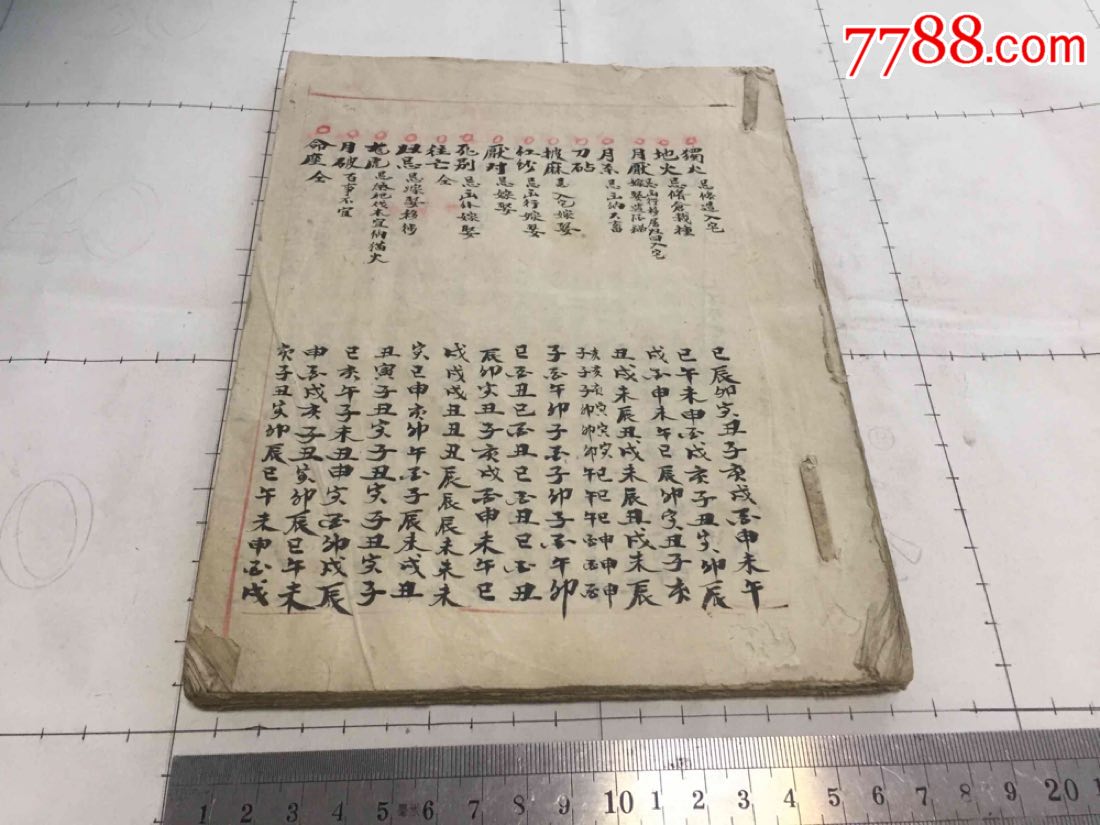 7788.com
獨火 忌修造入宅 巳辰卯寅丑子亥戌酉申未午
地火 忌修倉栽種 巳午未申酉戌亥子丑寅卯辰
月厭 忌出行移居 入宅 嫁娶 戌酉申未午巳辰卯寅丑子亥
月杀 忌出納六畜 丑戌未辰丑戌未辰丑戌未辰
刀砧 亥亥亥寅寅寅巳巳巳申申申
子子子卯卯卯午午午酉酉酉
披麻 忌入宅嫁娶 子酉午卯子酉子卯子酉午卯
红纱 忌出行嫁娶 巳酉丑巳酉丑巳酉丑巳酉丑
厭对 忌嫁娶 辰卯寅丑子亥戌酉申未午巳
死别 忌出休嫁娶 戌戌戌丑丑丑辰辰辰未未未
往亡 仝 寅巳申亥卯午酉子辰未戌丑
忌 忌嫁娶移徙 丑寅子丑寅子丑寅子丑寅子
龙虎 忌祭祀伐木宜納猫犬 巳亥午子未丑申寅酉卯戌辰
月破 百事不宜 申酉戌亥子丑寅卯辰巳午未
命座 仝 亥子丑寅卯辰巳午未申酉戌
1 2 3 4 5 毫米 6 7 8 9 10 1 2 3 4 5 6 7 8 9 20 1